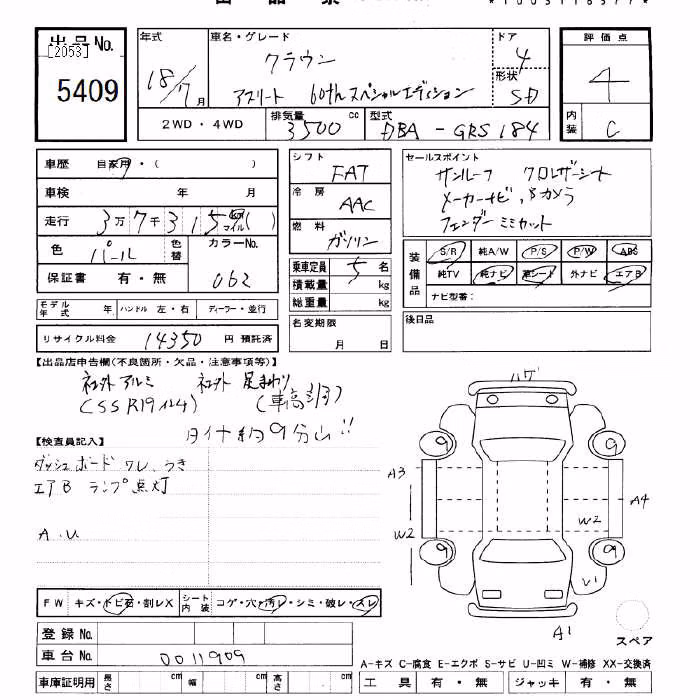 出品No.
[2053]
5409
年式
18/7月
車名・グレード
クラウン
アスリート 60thスペシャルエディション
ドア
4
形状
SD
評価点
4
内装
C
2WD・4WD
排気量 cc
3500
型式
DBA-GRS184
車歴 自家用・( )
車検 年 月
走行 3万7千315 km マイル ( )
色 パール 色替
カラーNo.
062
保証書 有・無
モデル年式 年 ハンドル 左・右 ディーラー・並行
リサイクル料金 14350 円 預託済
シフト FAT
冷房 AAC
燃料 ガソリン
乗車定員 5 名
積載量 kg
総重量 kg
名変期限
月 日
セールスポイント
サンルーフ クロレザーシート
メーカーナビ、Bカメラ
フェンダーミミカット
装備品
S/R 純A/W P/S P/W ABS
純TV 純ナビ 革シート 外ナビ エアB
ナビ型番:
後日品
【出品店申告欄(不良箇所・欠品・注意事項等)】
社外アルミ 社外足まわり
(SSR19インチ) (車高調)
タイヤ約9分山!!
【検査員記入】
ダッシュボードワレ、うき
エアB ランプ点灯
A.U
ハゲ
9
9
A3
A4
W2
W2
9
9
V1
A1
スペア
FW キズ・トビ石・割レX シート内装 コゲ・穴・汚レ・シミ・破レ・スレ
登録No.
車台No. 0011909
A-キズ C-腐食 E-エクボ S-サビ U-凹ミ W-補修 XX-交換済
車庫証明用 長さ cm 幅 cm 高さ cm
工具 有・無 ジャッキ 有・無